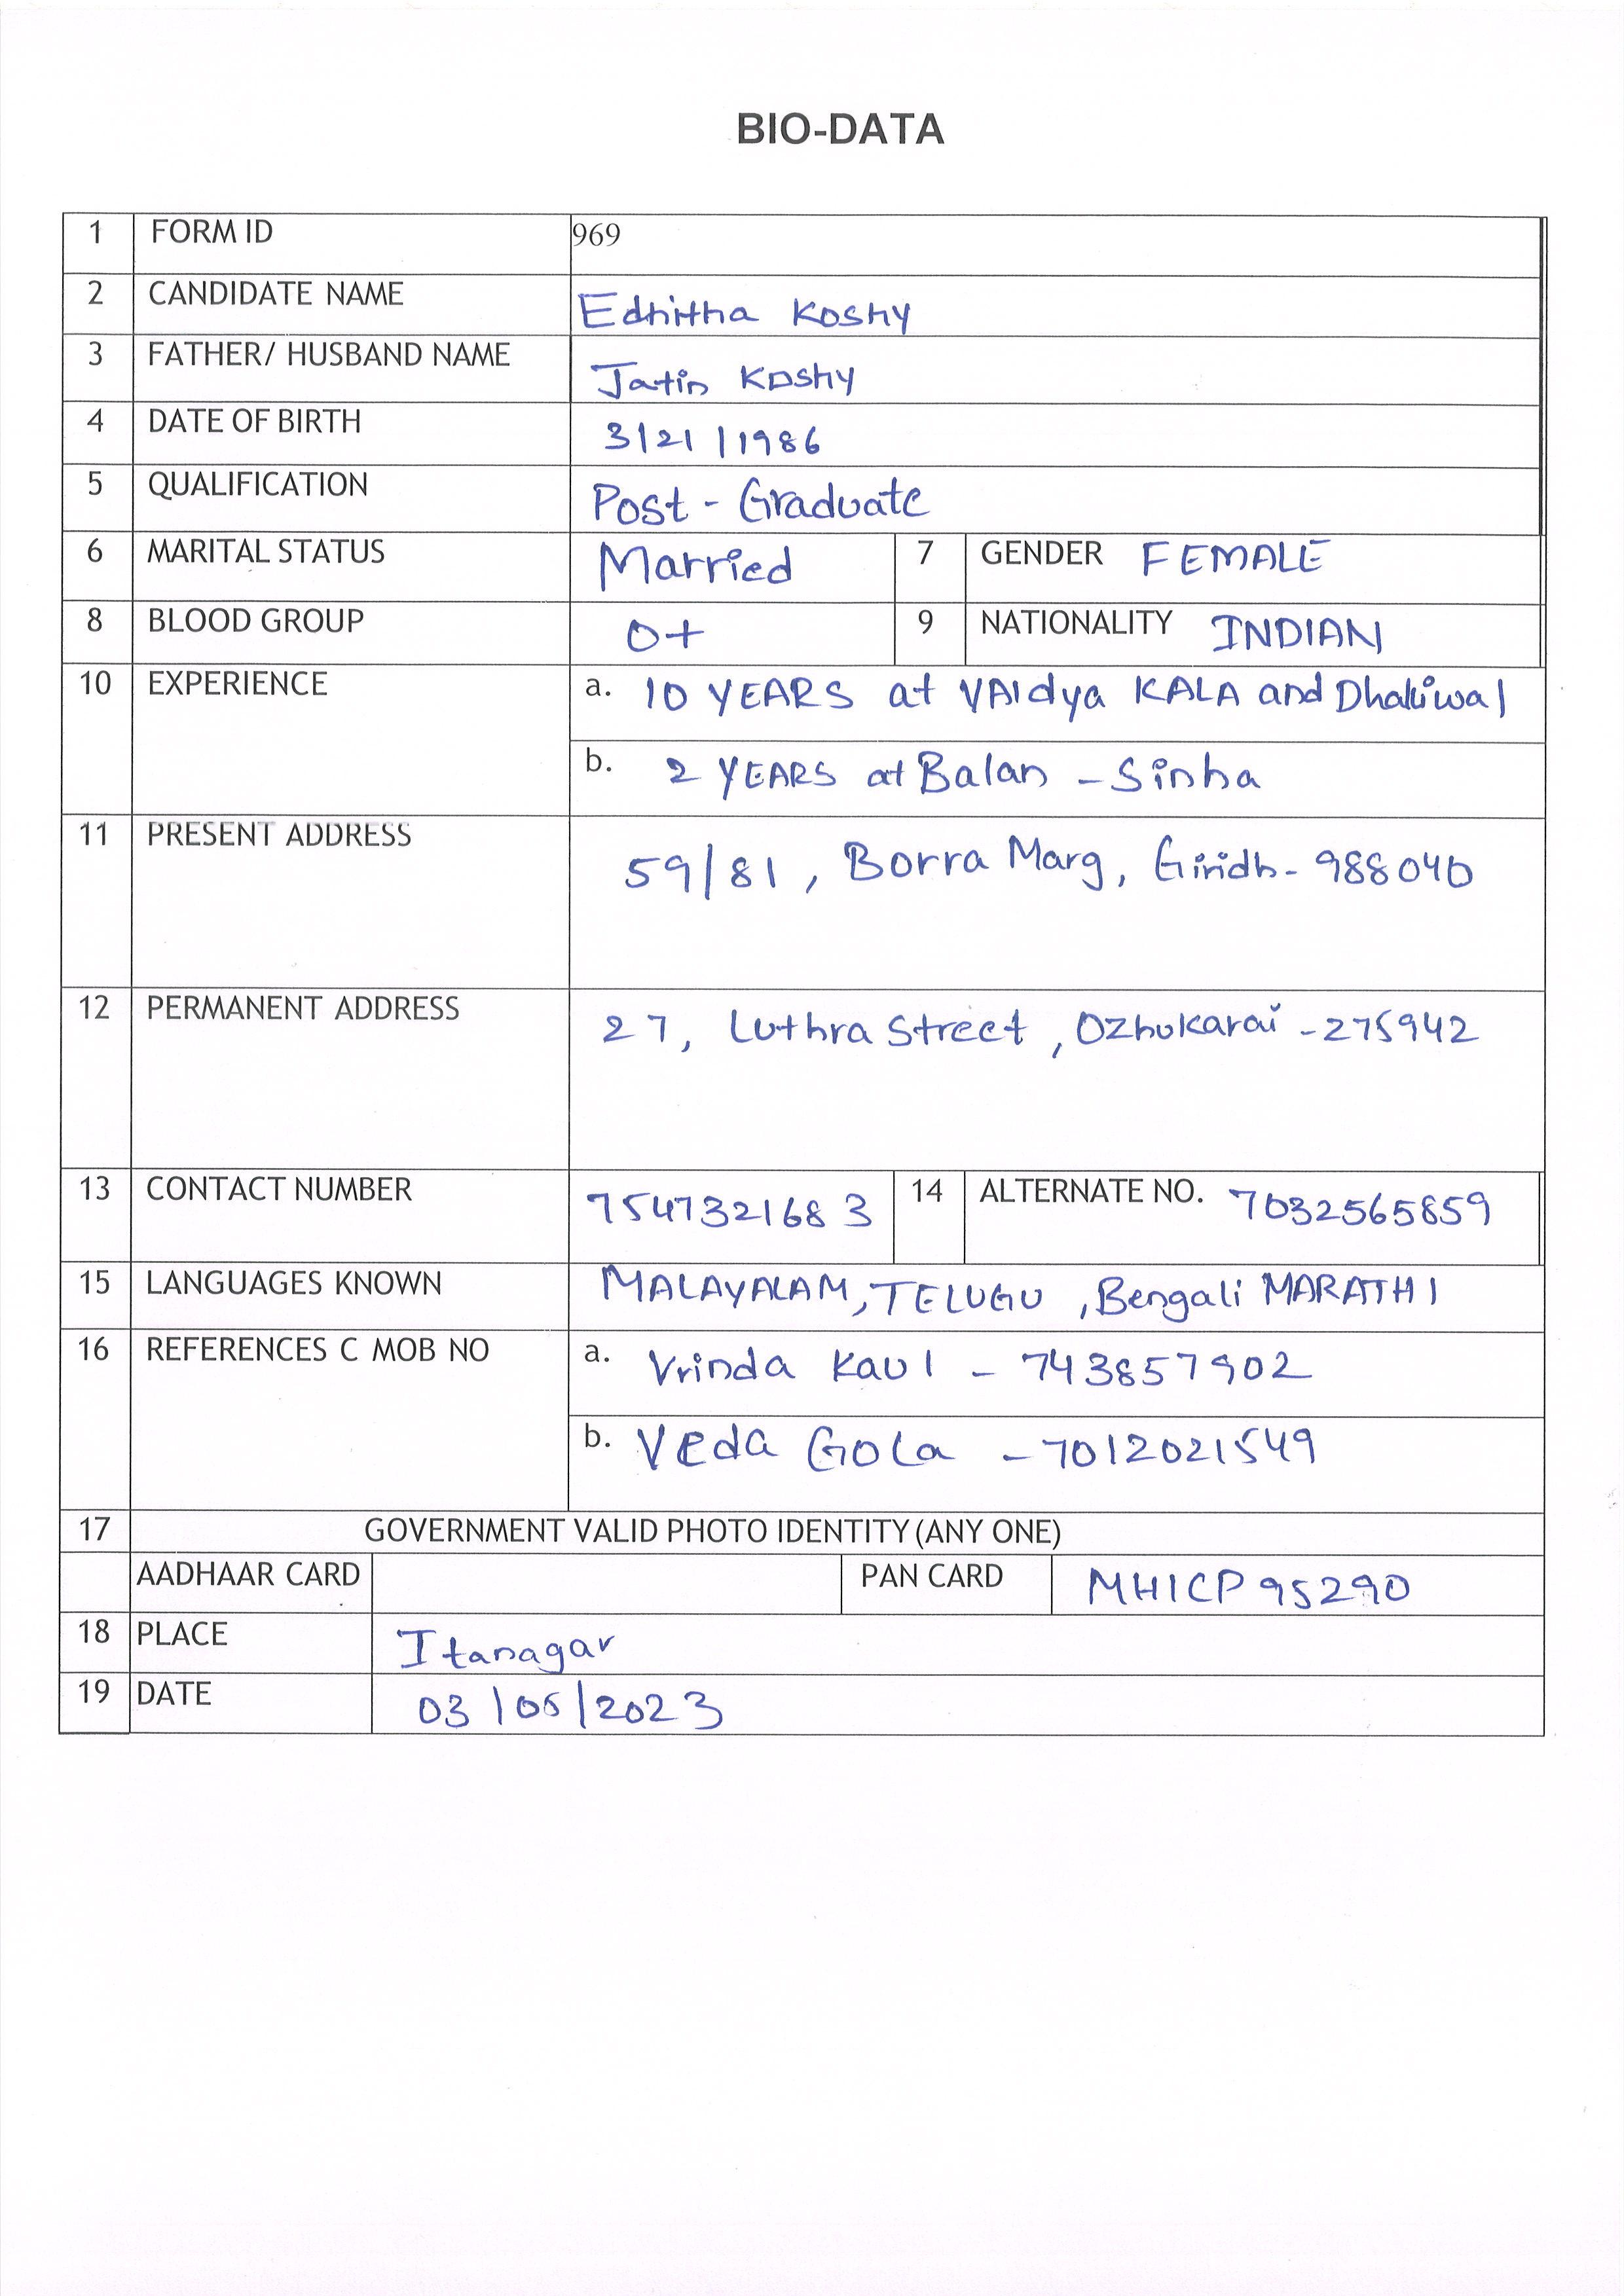 BIO-DATA
1 FORM ID 969
2 CANDIDATE NAME Edhitha Koshy
3 FATHER/ HUSBAND NAME Jatin Koshy
4 DATE OF BIRTH 3/21/1986
5 QUALIFICATION Post - Graduate
6 MARITAL STATUS Married 7 GENDER FEMALE
8 BLOOD GROUP O+ 9 NATIONALITY INDIAN
10 EXPERIENCE a. 10 YEARS at VAIdya KALA and Dhaliwal
b. 2 YEARS at Balan - Sinha
11 PRESENT ADDRESS 59/81, Borra Marg, Giridh - 988040
12 PERMANENT ADDRESS 27, Luthra Street, Ozhukarai - 275942
13 CONTACT NUMBER 7547321683 14 ALTERNATE NO. 7032565859
15 LANGUAGES KNOWN MALAYALAM, TELUGU, Bengali MARATHI
16 REFERENCES C MOB NO a. Vrinda Kaul - 743857902
b. Veda Gola - 7012021549
17 GOVERNMENT VALID PHOTO IDENTITY (ANY ONE)
AADHAAR CARD PAN CARD MHICP95290
18 PLACE Itanagar
19 DATE 03/05/2023